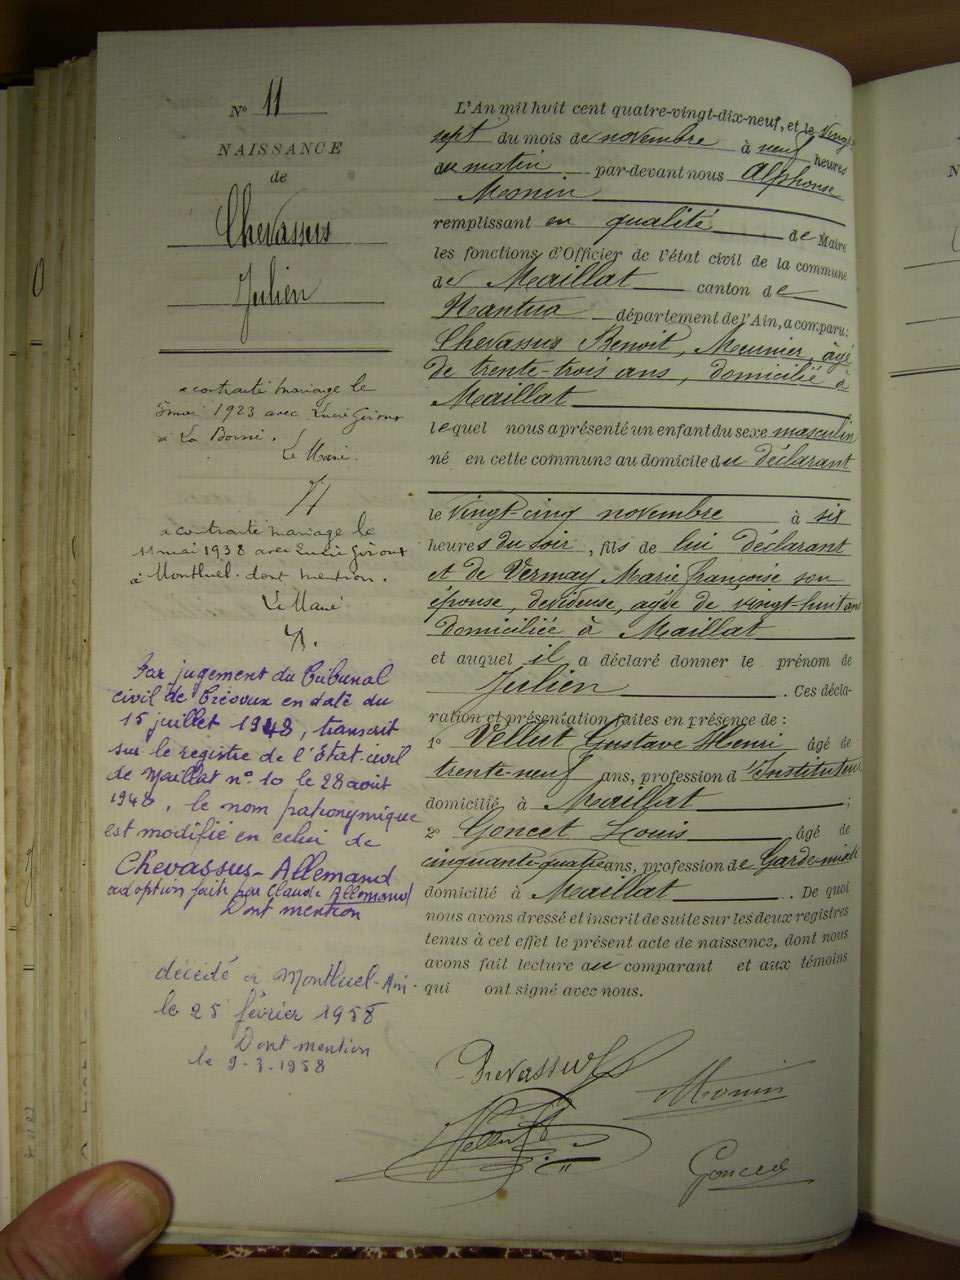 N° 11
NAISSANCE
de
Chevassus
Julien
a contracté mariage le
5 mai 1923 avec Lucie Giroux
à La Boisse.
Le Maire.
a contracté mariage le
11 mai 1938 avec Lucie Giroux
à Montluel. dont mention.
Le Maire
Par jugement du Tribunal
civil de Trévoux en date du
15 juillet 1948, transcrit
sur le registre de l'Etat-civil
de Maillat n° 10 le 28 août
1948, le nom patronymique
est modifié en celui de
Chevassus-Allemand
adoption faite par Claude Allemand
Dont mention
décédé à Montluel-Ain-
le 25 février 1958
Dont mention
le 9-3-1958
L'An mil huit cent quatre-vingt-dix-neuf, et le vingt-
sept du mois de novembre à neuf heures
du matin par-devant nous Alphonse
Monin
remplissant en qualité de Maire
les fonctions d'Officier de l'état civil de la commune
de Maillat canton de
Nantua département de l'Ain, a comparu:
Chevassus Benoit, Meunier, âgé
de trente-trois ans, domicilié à
Maillat
lequel nous a présenté un enfant du sexe masculin
né en cette commune au domicile du déclarant
le vingt-cinq novembre à six
heures du soir, fils de lui déclarant
et de Vermay Marie françoise son
épouse, devideuse, agée de vingt-huit ans
domiciliée à Maillat
et auquel il a déclaré donner le prénom de
Julien . Ces décla-
ration et présentation faites en présence de :
1° Vellut Gustave Henri âgé de
trente-neuf ans, profession d'Instituteur
domicilié à Maillat ;
2° Goncet Louis âgé de
cinquante-quatre ans, profession de Garde-mixte
domicilié à Maillat . De quoi
nous avons dressé et inscrit de suite sur les deux registres
tenus à cet effet le présent acte de naissance, dont nous
avons fait lecture au comparant et aux témoins
qui ont signé avec nous.
Chevassus
Monin
Vellut
Goncet